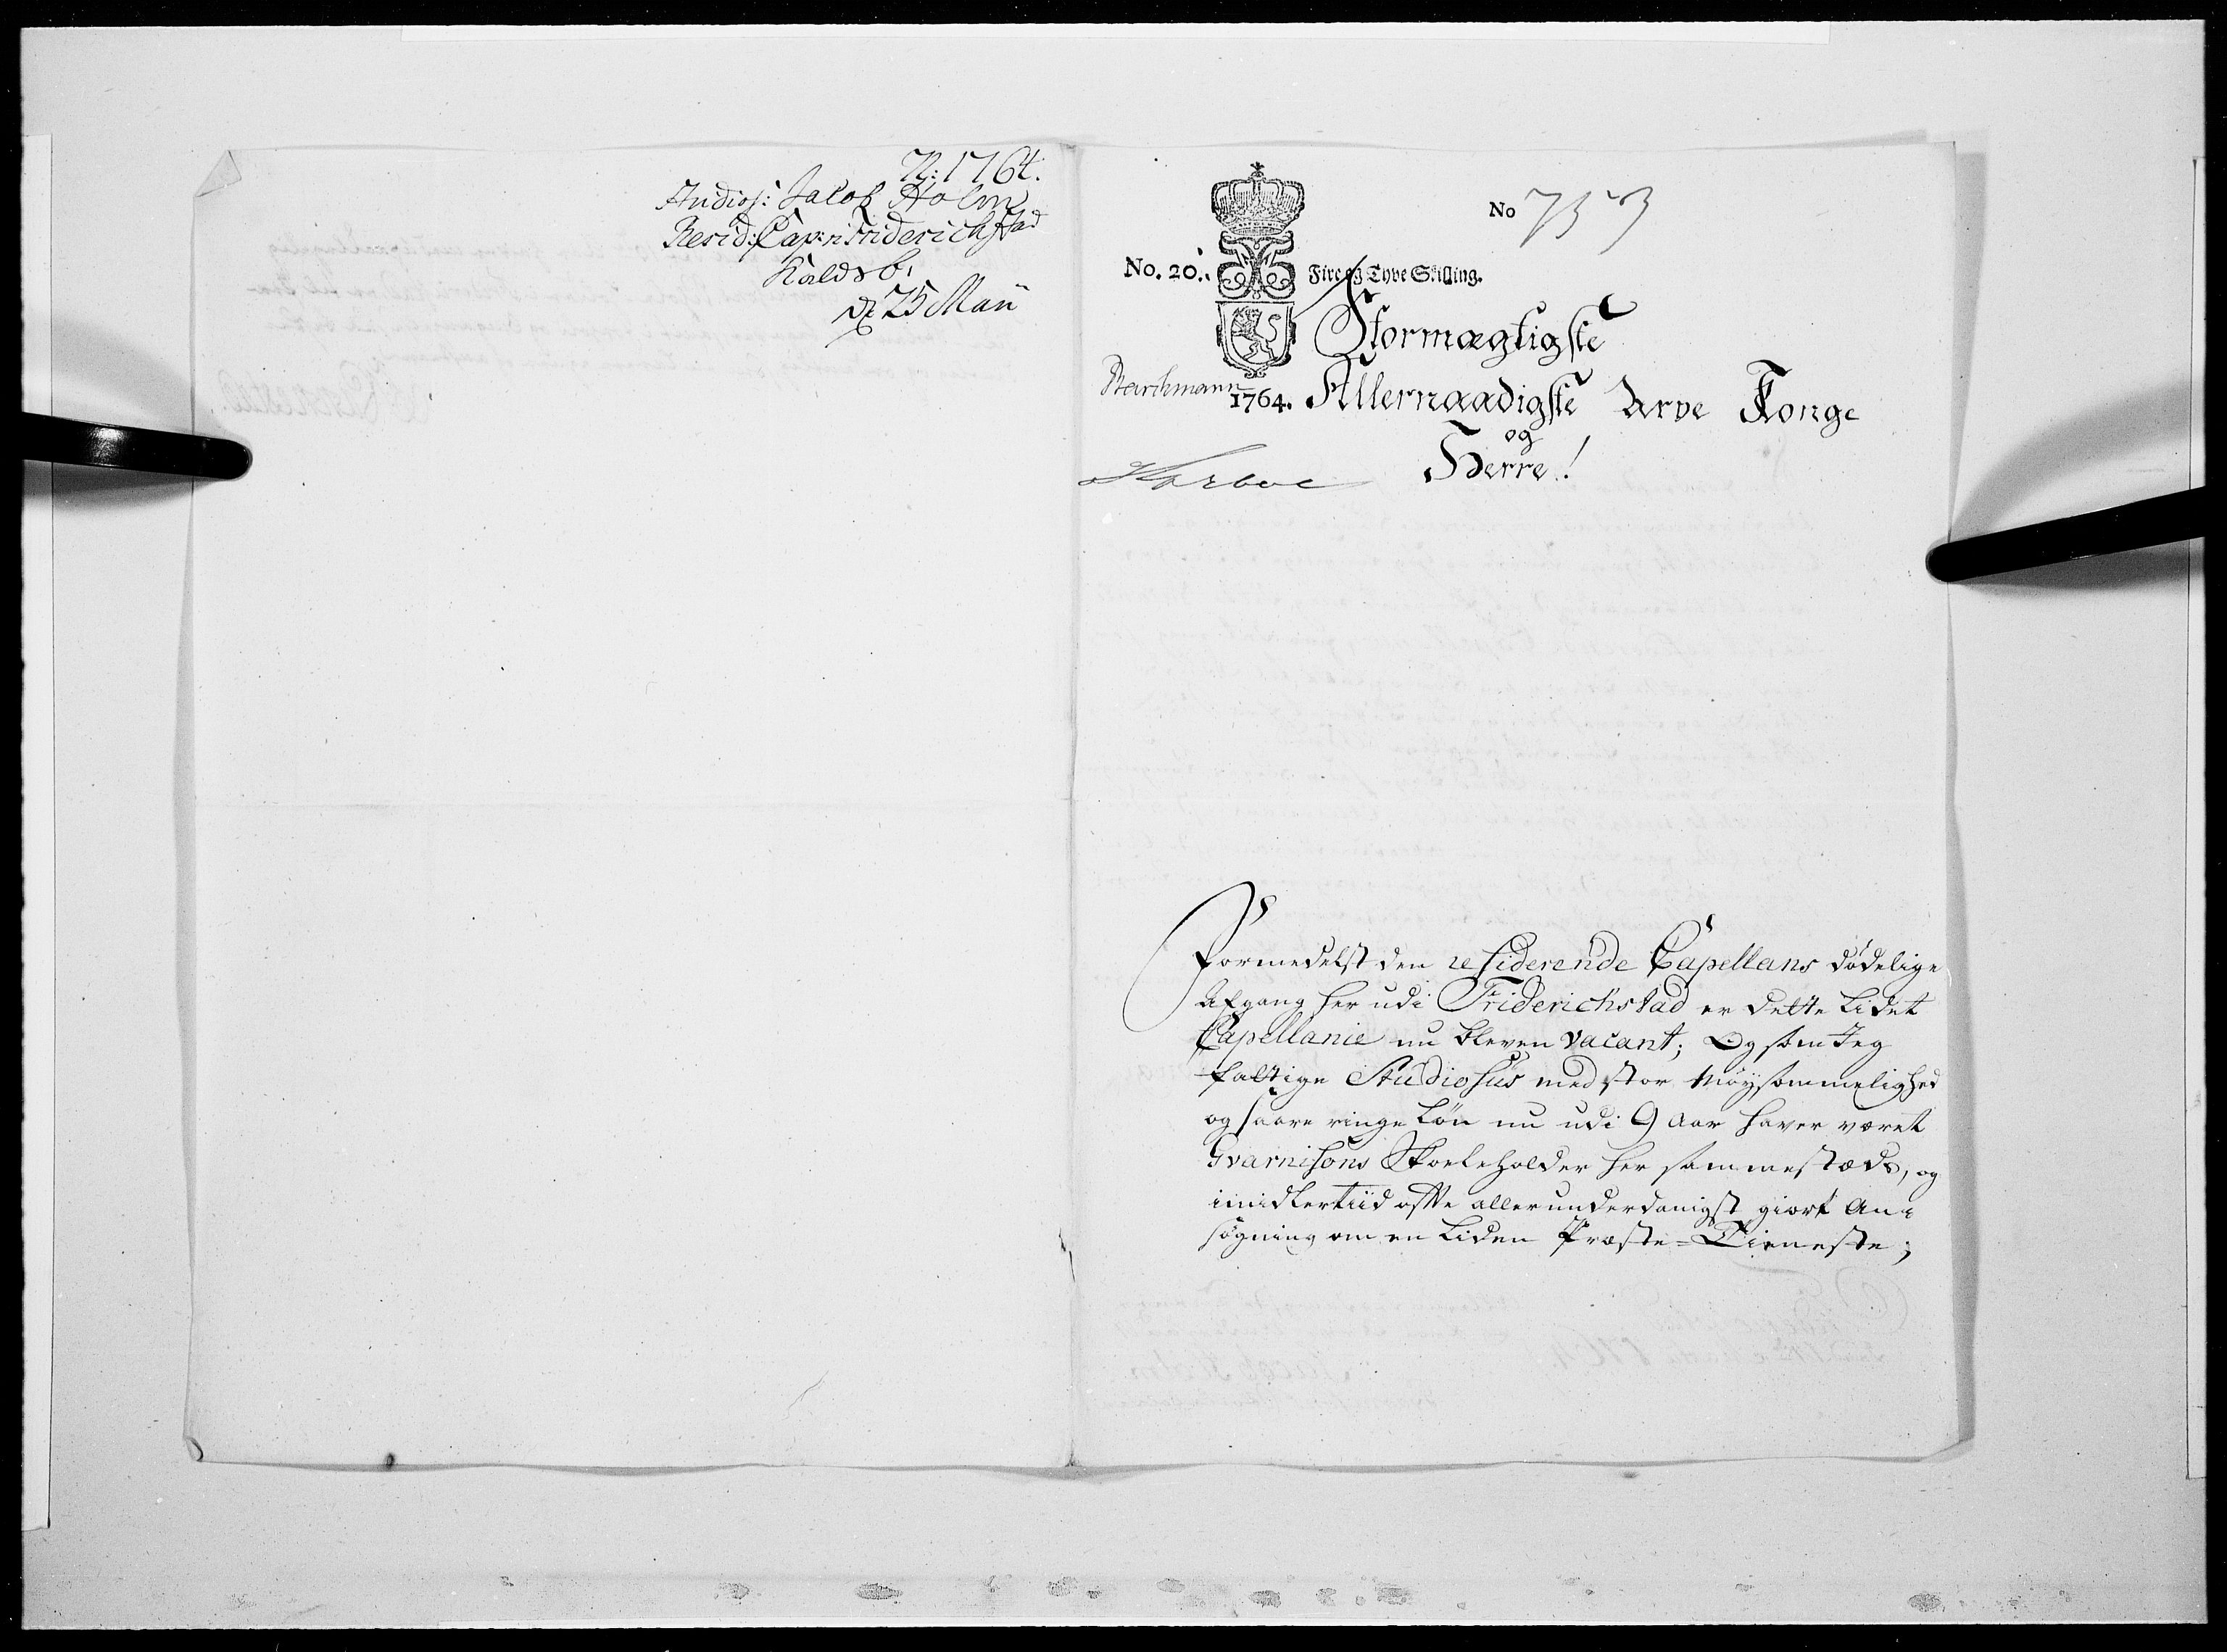 N: 1764.
Studios: Jacob Holm
Resid: Cap: i Friderichstad
Kalds b:
d: 25 Maii
No 753
No. 20.
Fire og Tyve Skilling.
Stormægtigste
1764. Allernaadigste Arve Konge
og
Herre!
Formedelst den residerende Capellans dödelige
Afgang her udi Friderichstad er dette lidet
Capellanie nu bleven vacant; Og som Jeg
fattige Studiosus med stor Möysommelighed
og saare ringe Lön nu udi 9 Aar haver været
Gvarnisons Skoeleholder her sammestæds, og
imidlertiid ofte allerunderdanigst giort An-
sögning om en liden Præste-Tieneste;